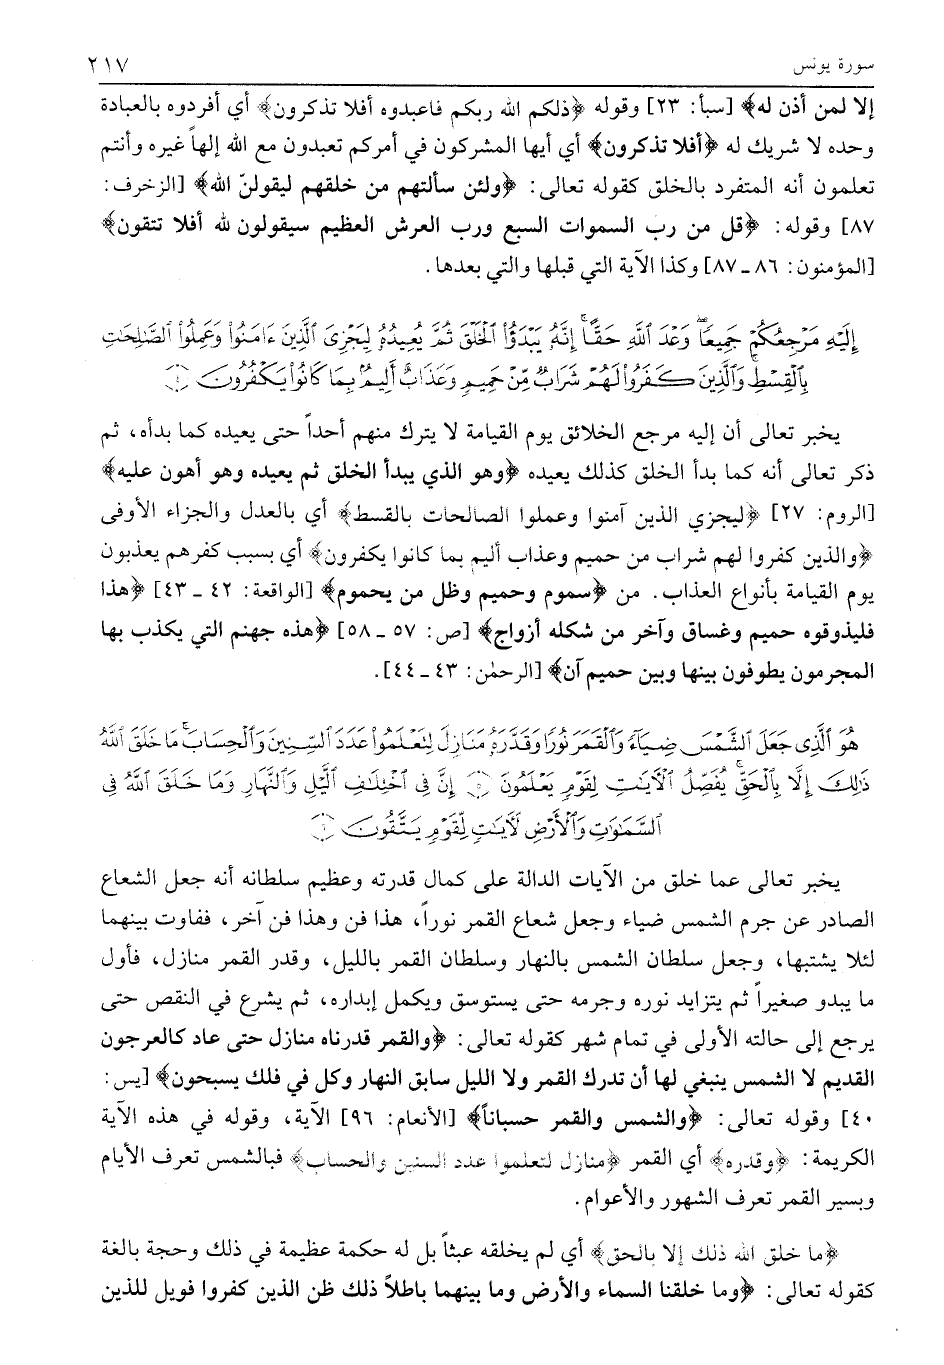 سورة يونس ٢١٧
إلا لمن أذن له﴾ [سبأ: ٢٣] وقوله ﴿ذلكم الله ربكم فاعبدوه أفلا تذكرون﴾ أي أفردوه بالعبادة
وحده لا شريك له ﴿أفلا تذكرون﴾ أي أيها المشركون في أمركم تعبدون مع الله إلهاً غيره وأنتم
تعلمون أنه المتفرد بالخلق كقوله تعالى: ﴿ولئن سألتهم من خلقهم ليقولنّ الله﴾ [الزخرف:
٨٧] وقوله: ﴿قل من رب السموات السبع ورب العرش العظيم سيقولون لله أفلا تتقون﴾
[المؤمنون: ٨٦ ـ ٨٧] وكذا الآية التي قبلها والتي بعدها.
إِلَيْهِ مَرْجِعُكُمْ جَمِيعًا ۖ وَعْدَ اللَّهِ حَقًّا ۚ إِنَّهُ يَبْدَؤُا الْخَلْقَ ثُمَّ يُعِيدُهُ لِيَجْزِيَ الَّذِينَ ءَامَنُوا وَعَمِلُوا الصَّٰلِحَٰتِ
بِالْقِسْطِ ۚ وَالَّذِينَ كَفَرُوا لَهُمْ شَرَابٌ مِّنْ حَمِيمٍ وَعَذَابٌ أَلِيمٌ بِمَا كَانُوا يَكْفُرُونَ ﴿٤﴾
يخبر تعالى أن إليه مرجع الخلائق يوم القيامة لا يترك منهم أحداً حتى يعيده كما بدأه، ثم
ذكر تعالى أنه كما بدأ الخلق كذلك يعيده ﴿وهو الذي يبدأ الخلق ثم يعيده وهو أهون عليه﴾
[الروم: ٢٧] ﴿ليجزي الذين آمنوا وعملوا الصالحات بالقسط﴾ أي بالعدل والجزاء الأوفى
﴿والذين كفروا لهم شراب من حميم وعذاب أليم بما كانوا يكفرون﴾ أي بسبب كفرهم يعذبون
يوم القيامة بأنواع العذاب. من ﴿سموم وحميم وظل من يحموم﴾ [الواقعة: ٤٢ ـ ٤٣] ﴿هذا
فليذوقوه حميم وغساق وآخر من شكله أزواج﴾ [ص: ٥٧ ـ ٥٨] ﴿هذه جهنم التي يكذب بها
المجرمون يطوفون بينها وبين حميم آن﴾ [الرحمٰن: ٤٣ ـ ٤٤].
هُوَ الَّذِي جَعَلَ الشَّمْسَ ضِيَاءً وَالْقَمَرَ نُورًا وَقَدَّرَهُ مَنَازِلَ لِتَعْلَمُوا عَدَدَ السِّنِينَ وَالْحِسَابَ ۚ مَا خَلَقَ اللَّهُ
ذَٰلِكَ إِلَّا بِالْحَقِّ ۚ يُفَصِّلُ الْآيَٰتِ لِقَوْمٍ يَعْلَمُونَ ﴿٥﴾ إِنَّ فِي اخْتِلَٰفِ الَّيْلِ وَالنَّهَارِ وَمَا خَلَقَ اللَّهُ فِي
السَّمَٰوَٰتِ وَالْأَرْضِ لَآيَٰتٍ لِّقَوْمٍ يَتَّقُونَ ﴿٦﴾
يخبر تعالى عما خلق من الآيات الدالة على كمال قدرته وعظيم سلطانه أنه جعل الشعاع
الصادر عن جرم الشمس ضياء وجعل شعاع القمر نوراً، هذا فن وهذا فن آخر، ففاوت بينهما
لئلا يشتبها، وجعل سلطان الشمس بالنهار وسلطان القمر بالليل، وقدر القمر منازل، فأول
ما يبدو صغيراً ثم يتزايد نوره وجرمه حتى يستوسق ويكمل إبداره، ثم يشرع في النقص حتى
يرجع إلى حالته الأولى في تمام شهر كقوله تعالى: ﴿والقمر قدرناه منازل حتى عاد كالعرجون
القديم لا الشمس ينبغي لها أن تدرك القمر ولا الليل سابق النهار وكل في فلك يسبحون﴾ [يس:
٤٠] وقوله تعالى: ﴿والشمس والقمر حسباناً﴾ [الأنعام: ٩٦] الآية، وقوله في هذه الآية
الكريمة: ﴿وقدره﴾ أي القمر ﴿منازل لتعلموا عدد السنين والحساب﴾ فبالشمس تعرف الأيام
وبسير القمر تعرف الشهور والأعوام.
﴿ما خلق الله ذلك إلا بالحق﴾ أي لم يخلقه عبثاً بل له حكمة عظيمة في ذلك وحجة بالغة
كقوله تعالى: ﴿وما خلقنا السماء والأرض وما بينهما باطلاً ذلك ظن الذين كفروا فويل للذين